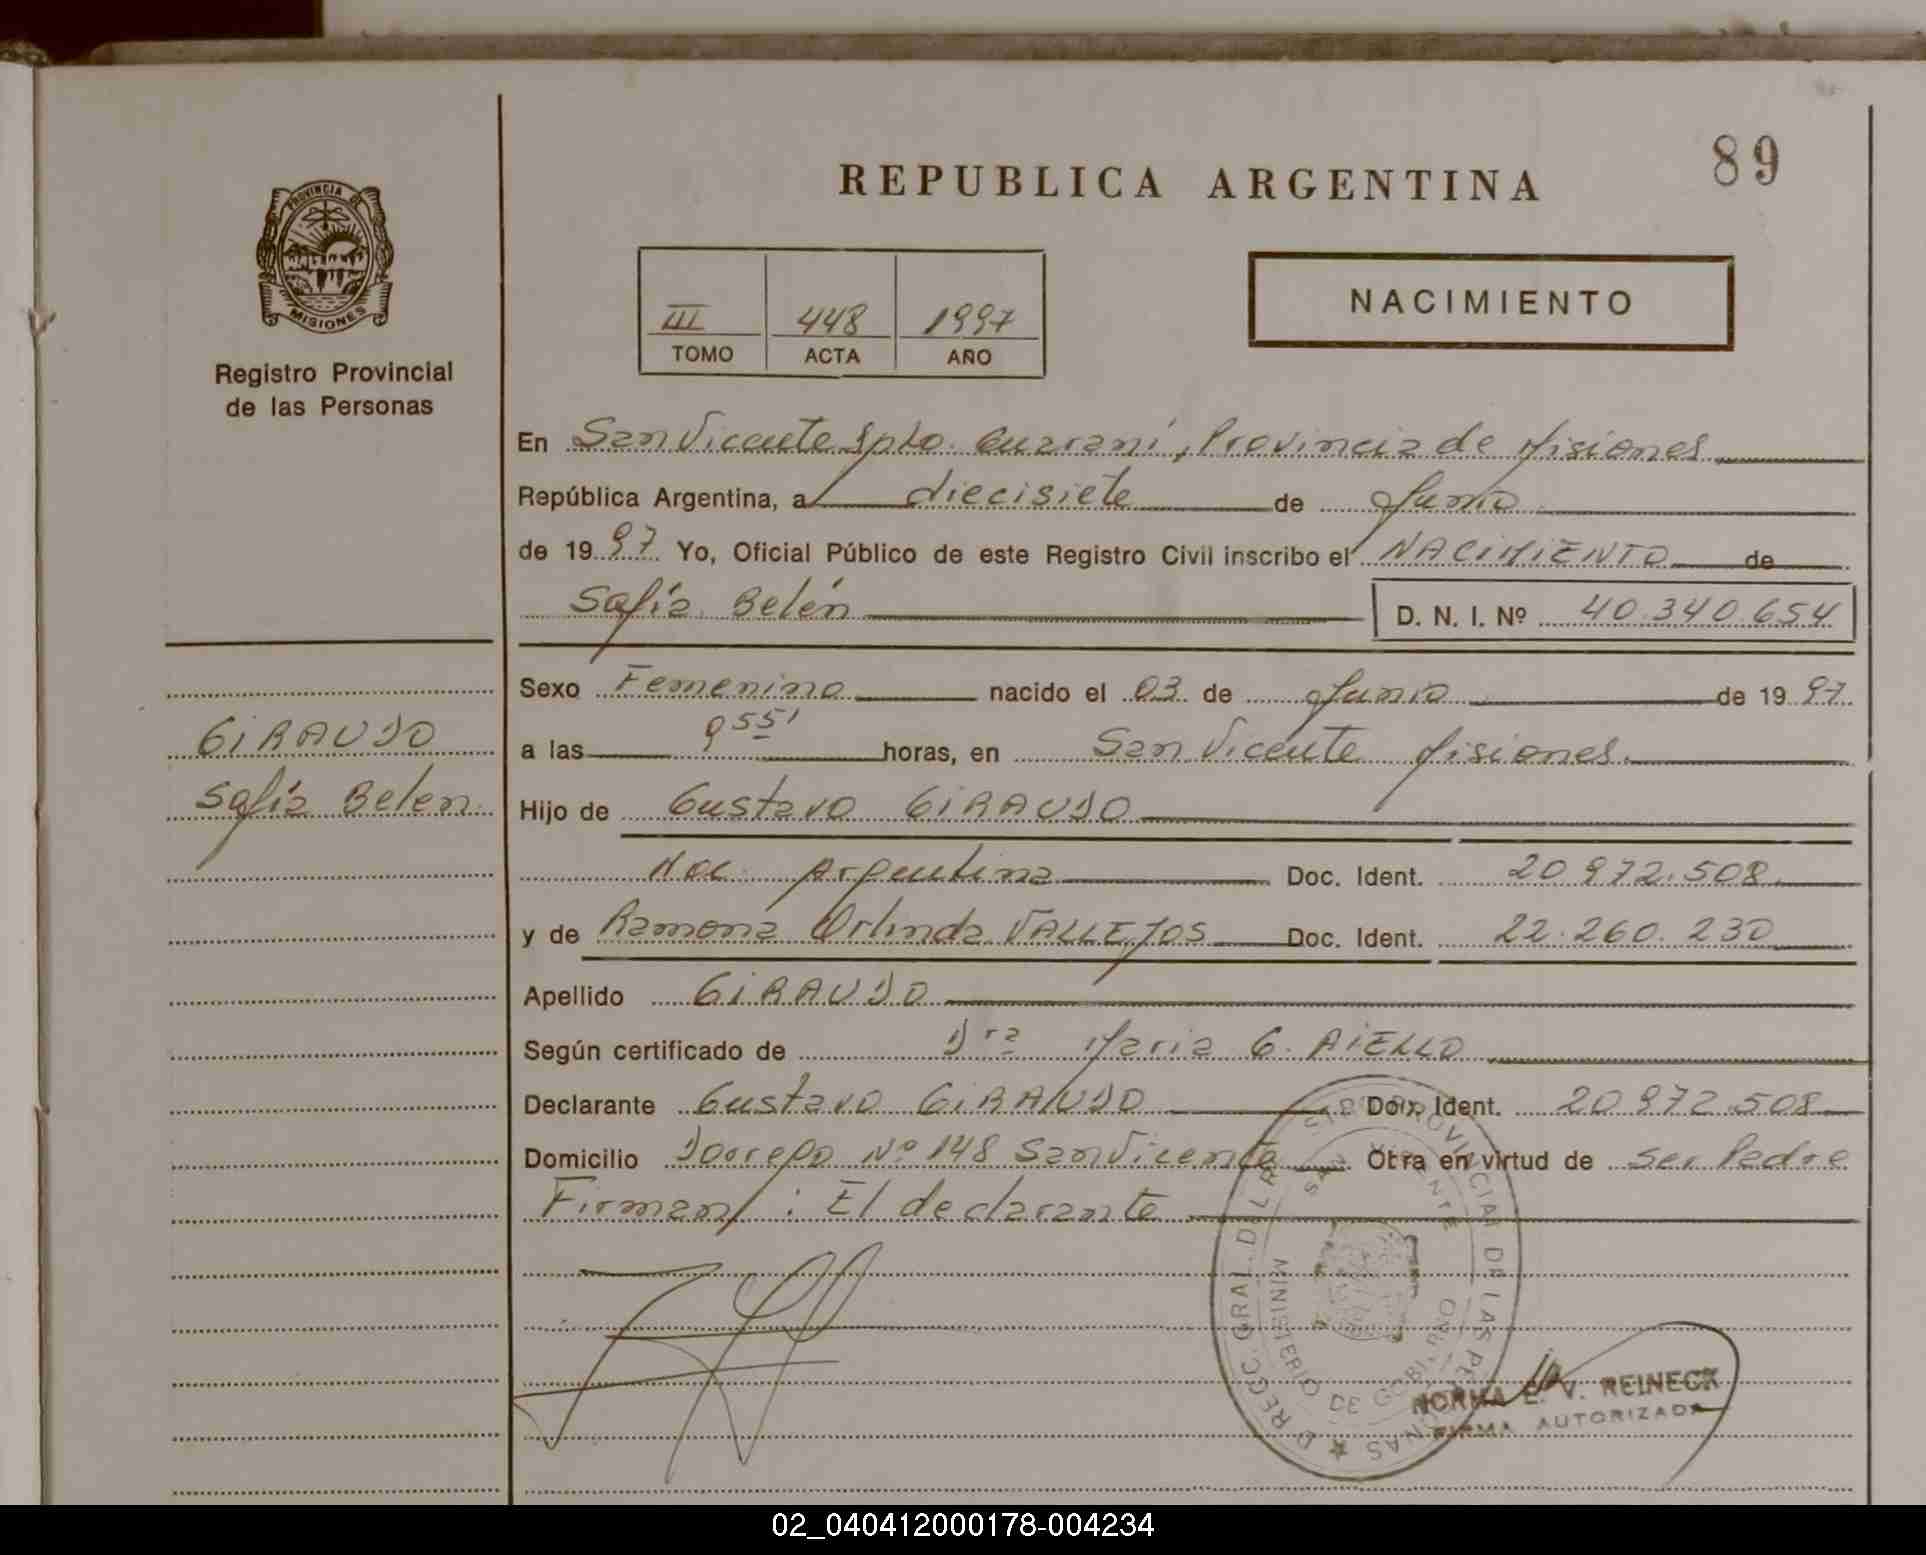 89
REPUBLICA ARGENTINA
PROVINCIA DE
MISIONES
Registro Provincial
de las Personas
III 448 1997
TOMO ACTA AÑO
NACIMIENTO
En San Vicente Dpto. Guaraní, Provincia de Misiones
República Argentina, a diecisiete de Junio
de 1997 Yo, Oficial Público de este Registro Civil inscribo el NACIMIENTO de
Sofía Belén D. N. I. Nº 40.340.654
Sexo Femenino nacido el 03 de Junio de 1997
GIRAUDO
Sofía Belen
a las 9 55' horas, en San Vicente Misiones.
Hijo de Gustavo GIRAUDO
Nac. Argentina Doc. Ident. 20.972.508
y de Ramona Orlinda VALLEJOS Doc. Ident. 22.260.230
Apellido GIRAUDO
Según certificado de Dra Maria G. AIELLO
Declarante Gustavo GIRAUDO Doc. Ident. 20.972.508
Domicilio Dorrego Nº 148 San Vicente Obra en virtud de ser Padre
Firman : El declarante
SAN VICENTE
MINISTERIO DE GOBIERNO
NORMA E. V. REINECK
FIRMA AUTORIZADA
02_040412000178-004234